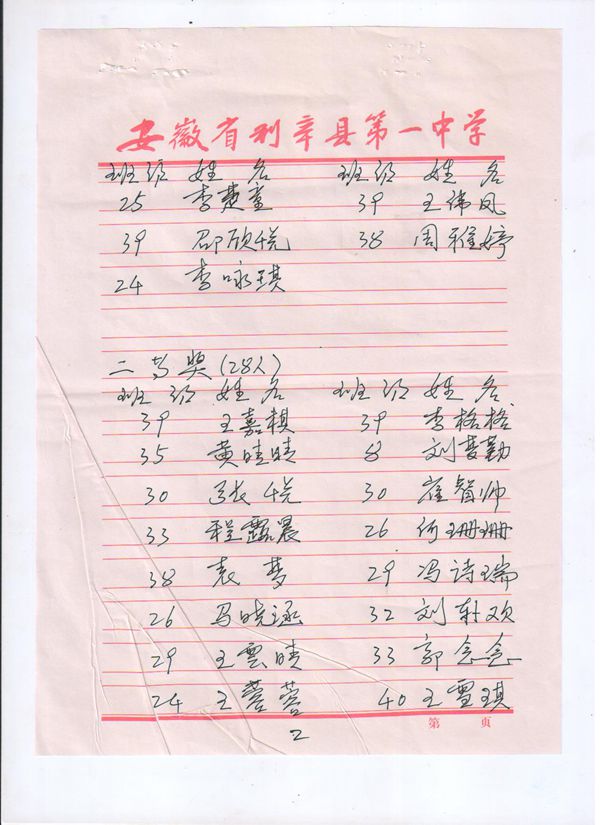 安徽省利辛县第一中学
班级 姓名 班级 姓名
25 李楚童 39 王伟凤
39 邵欣悦 38 周雅婷
24 李咏琪
二等奖（28人）
班级 姓名 班级 姓名
39 王嘉棋 39 李格格
35 黄晴晴 8 刘梦勤
30 张悦 30 崔智帅
33 程露晨 26 何珊珊
38 袁梦 29 冯诗瑞
26 马晓涵 32 刘轩欢
29 王雲晴 33 郭念念
24 王蓉蓉 40 王雪琪
第 页
2